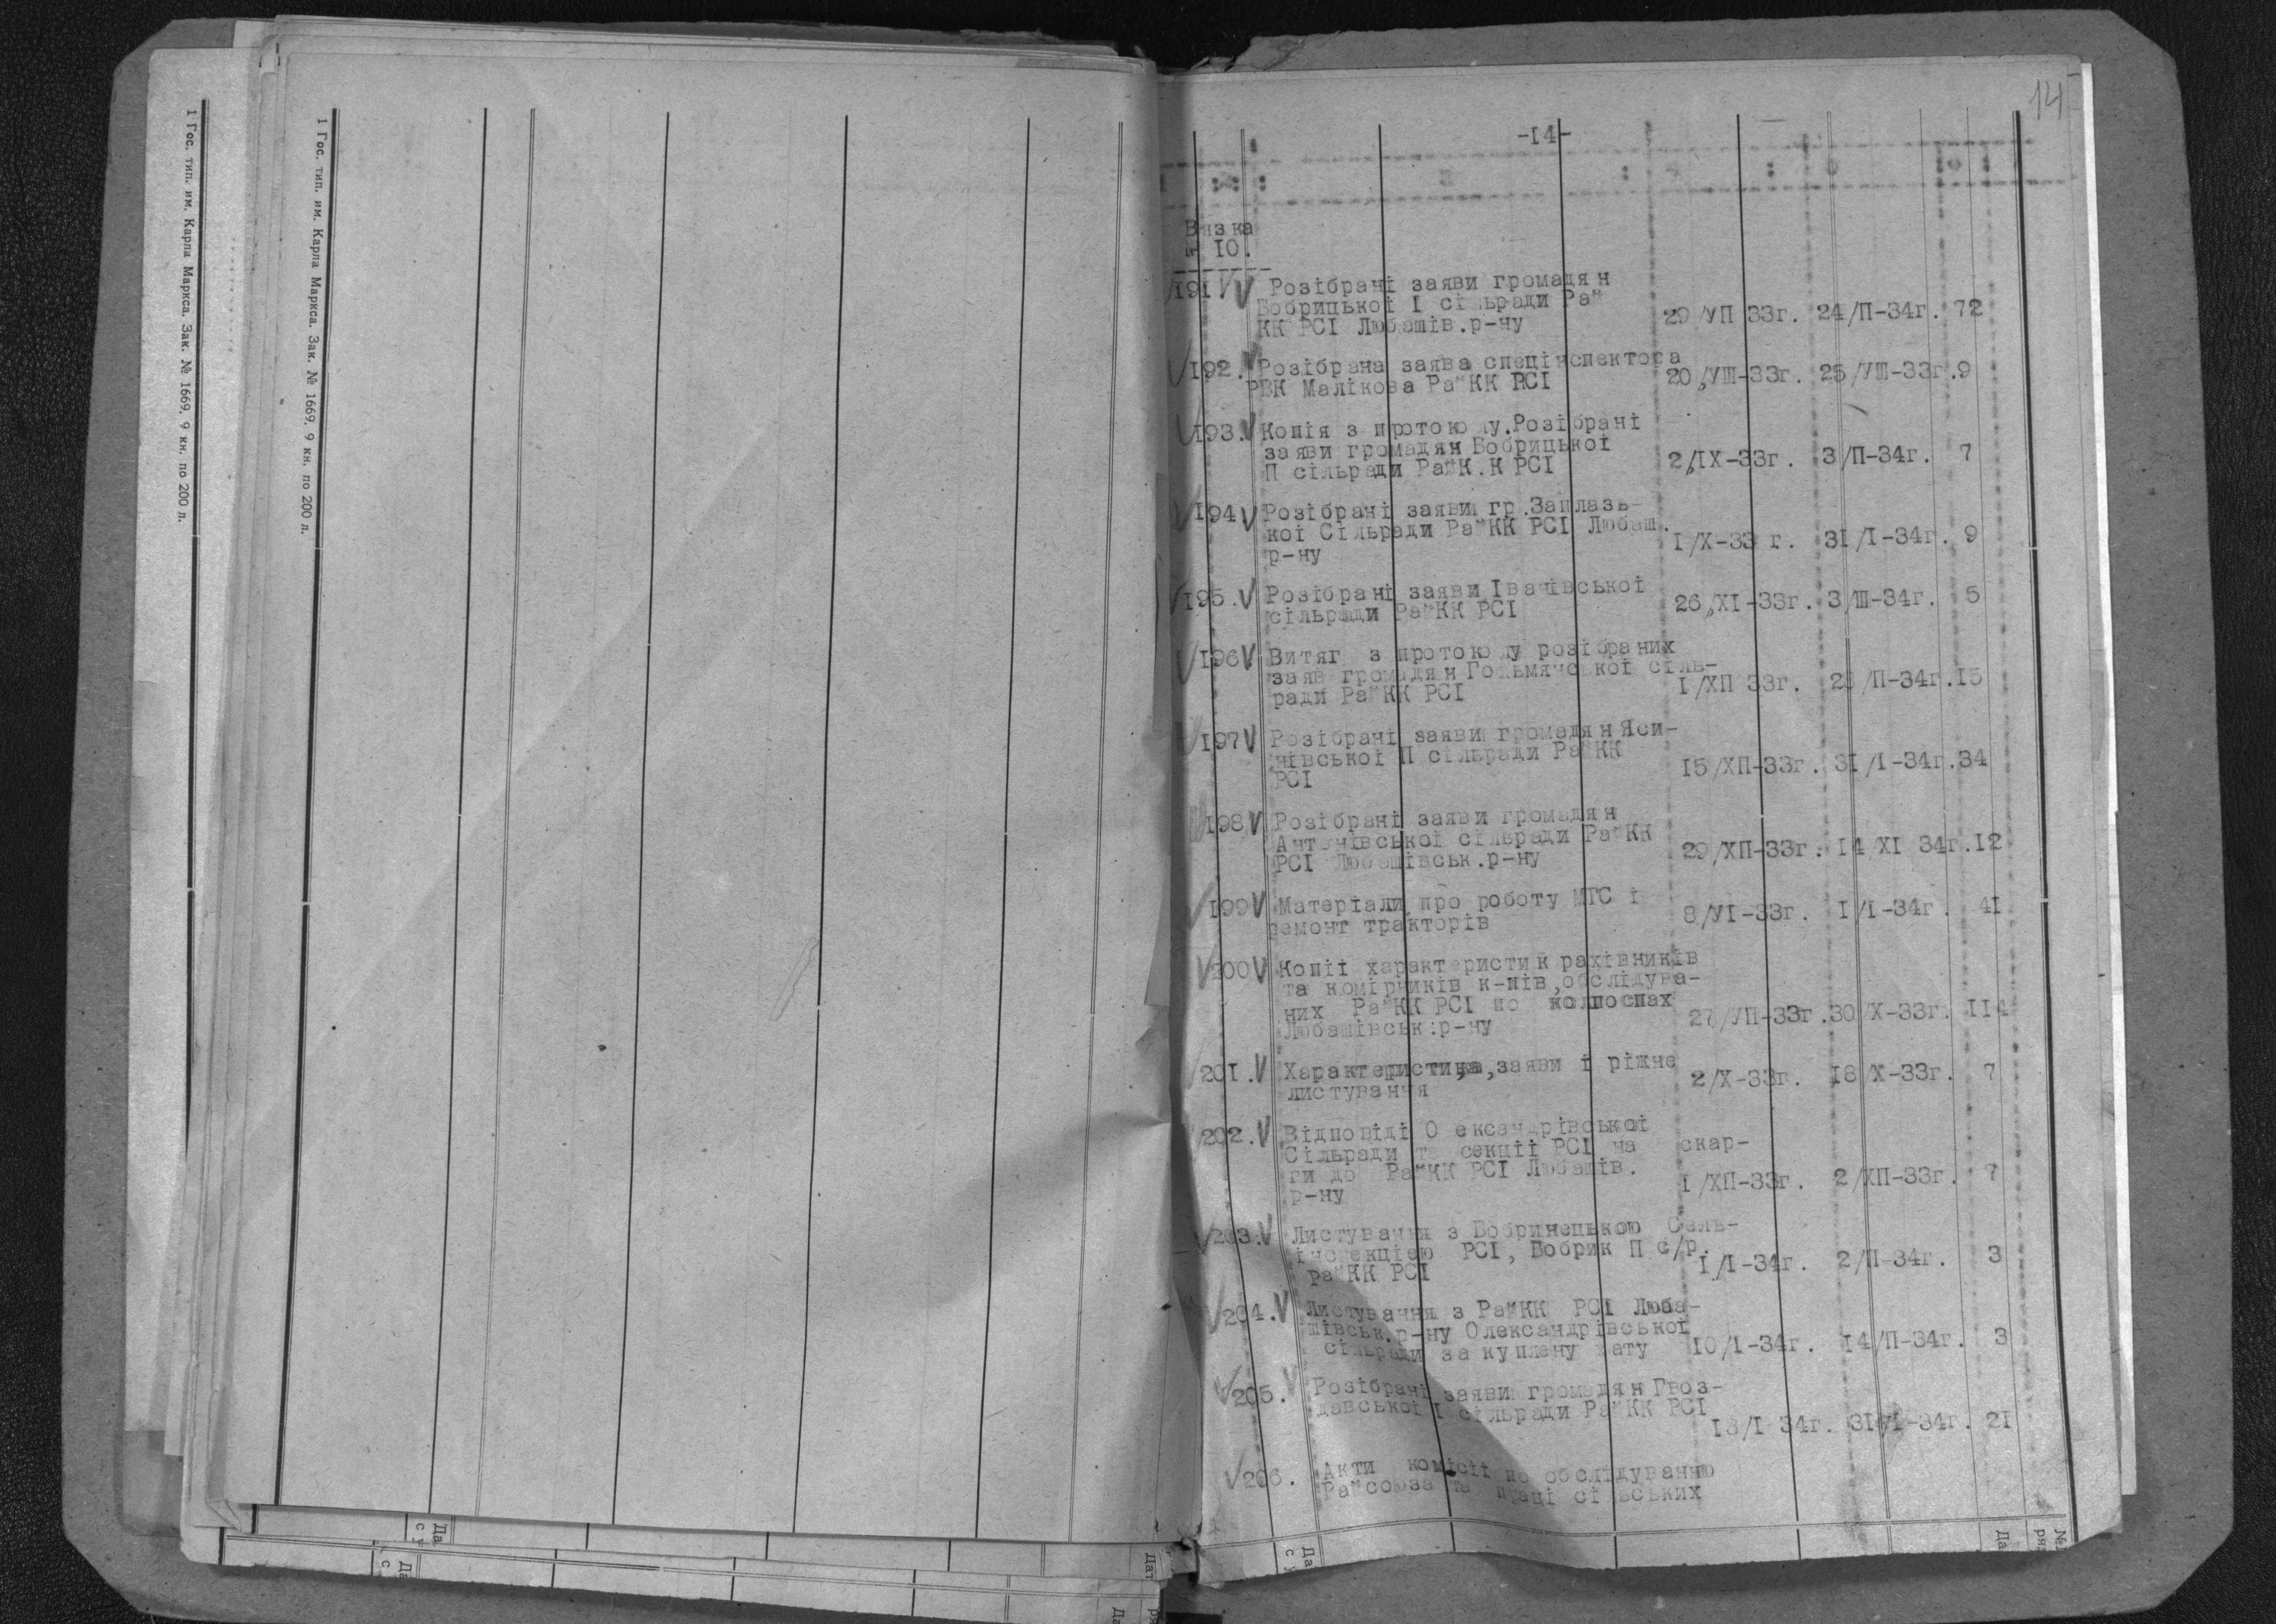 1 Гос. тип. им. Карла Маркса. Зак. № 1669. 9 кн. по 200 л.
1 Гос. тип. им. Карла Маркса. Зак. № 1669. 9 кн. по 200 л.
14
-14-
Вязка
№ 10.
191 Розібрані заяви громадян
Бобрицької I сільради Рай
КК РСІ Любашів.р-ну 29/УП 33г. 24/П-34г. 72
192. Розібрана заява спецінспектора
РВК Малікова РайКК РСІ 20/УШ-33г. 25/УШ-33г. 9
193. Копія з протоколу.Розібрані
заяви громадян Бобрицької
П сільради РайК.К РСІ 2/IX-33г. 3/П-34г. 7
194 Розібрані заяви гр.Заплазь-
кої Сільради РайКК РСІ Любаш.
р-ну 1/X-33 г. 31/I-34г. 9
195. Розібрані заяви Івачівської
сільради РайКК РСІ 26/XI-33г. 3/Ш-34г. 5
196 Витяг з протоколу розібраних
заяв громадян Гольмянської сіль-
ради РайКК РСІ 1/ХП 33г. /П-34г. 15
197 Розібрані заяви громадян Яси-
нівської П сільради РайКК
РСІ 15/ХП-33г. 31/I-34г. 34
198 Розібрані заяви громадян
Антонівської сільради РайКК
РСІ Любашівськ.р-ну 29/ХП-33г. 14/XI 34г. 12
199 Матеріали про роботу МТС і
ремонт тракторів 8/УІ-33г. 1/I-34г. 41
200 Копії характеристик рахівників
та комірників к-пів,обслідува-
них РайКК РСІ по колгоспах
Любашівськ.р-ну 27/УП-33г. 30/X-33г. 114
201. Характеристика,заяви і ріжне
листування 2/X-33г. 18/X-33г. 7
202. Відповіді Олександрівської
Сільради та секції РСІ на скар-
ги до РайКК РСІ Любашів.
р-ну 1/ХП-33г. 2/ХП-33г. 7
203. Листування з Бобринецькою Сель-
інспекцією РСІ, Бобрик П с/р.
РайКК РСІ 1/I-34г. 2/П-34г. 3
204. Листування з РайКК РСІ Люба-
шівськ.р-ну Олександрівської
сільради за куплену хату 10/I-34г. 14/П-34г. 3
205. Розібрані заяви громадян Гвоз-
давської I сільради РайКК РСІ
18/I 34г. 31/I-34г. 21
206. Акти комісії по обслідуванню
Райсоюза та праці сільських